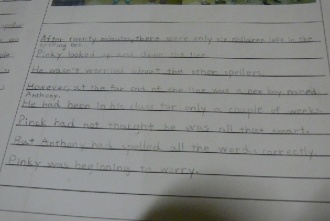 After twenty minutes, there were only six children left in the
spelling bee.
Pinky looked up and down the line.
He wasn't worried about the other spellers.
However, at the far end of the line was a new boy named
Anthony.
He had been in his class for only a couple of weeks.
Pinck had not thought he was all that smart.
But Anthony had spelled all the words correctly.
Pinky was beginning to worry.